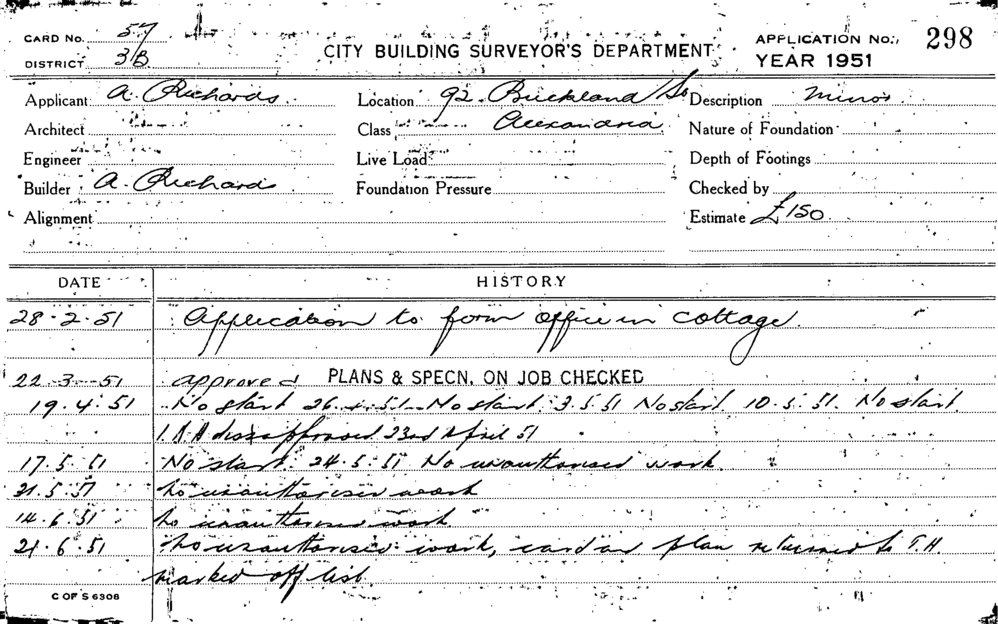 CARD No. 57
DISTRICT 3B
CITY BUILDING SURVEYOR'S DEPARTMENT
APPLICATION No. 298
YEAR 1951
Applicant A. Richards Location 92 Buckland St Description Minor
Architect Class Alexandria Nature of Foundation
Engineer Live Load Depth of Footings
Builder A. Richards Foundation Pressure Checked by
Alignment Estimate £150
DATE HISTORY
28.2.51 Application to form office in cottage
22.3.51 approved PLANS & SPECN. ON JOB CHECKED
19.4.51 No start 26.4.51 No start 3.5.51 No start 10.5.51. No start
disapproved 23rd April 51
17.5.51 No start. 24.5.51 No unauthorised work.
31.5.51 No unauthorised work
14.6.51 No unauthorised work
21.6.51 No unauthorised work, card and plan returned to T.H.
marked off list.
C OF S 6308